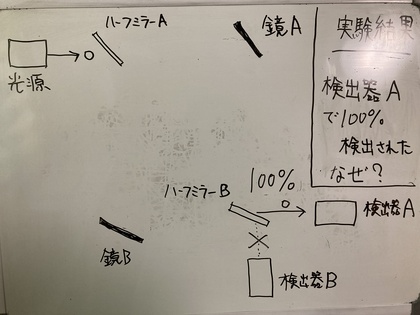 ハーフミラーA
鏡A
光源
実験結果
検出器A
で100%
検出された
なぜ?
ハーフミラーB
100%
検出器A
鏡B
検出器B